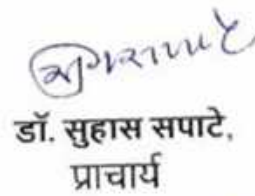 डॉ. सुहास सपाटे,
प्राचार्य